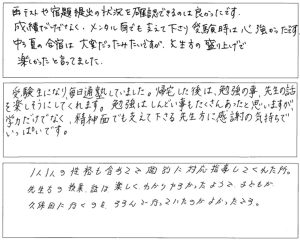 面テストや宿題提出の状況を確認できるのは良かったです。
成績だけでなく、メンタル面でも支えて下さり受験時は心強かったです。
中3夏の合宿は大変だったみたいですが、先生方の盛り上げで
楽しかったと言ってました。
受験生になり毎日通塾していました。帰宅した後は、勉強の事、先生の話
を楽しそうにしてくれます。勉強はしんどい事もたくさんあったと思いますが、
学力だけでなく、精神面でも支えて下さる先生方に感謝の気持ちで
いっぱいです。
1人1人の性格も合わせて個別に対応指導してくれた所。
先生方の授業、話は楽しくわかりやすかったようで、子どもが
久保田に行くのを、すすんで行っていたのがよかったです。